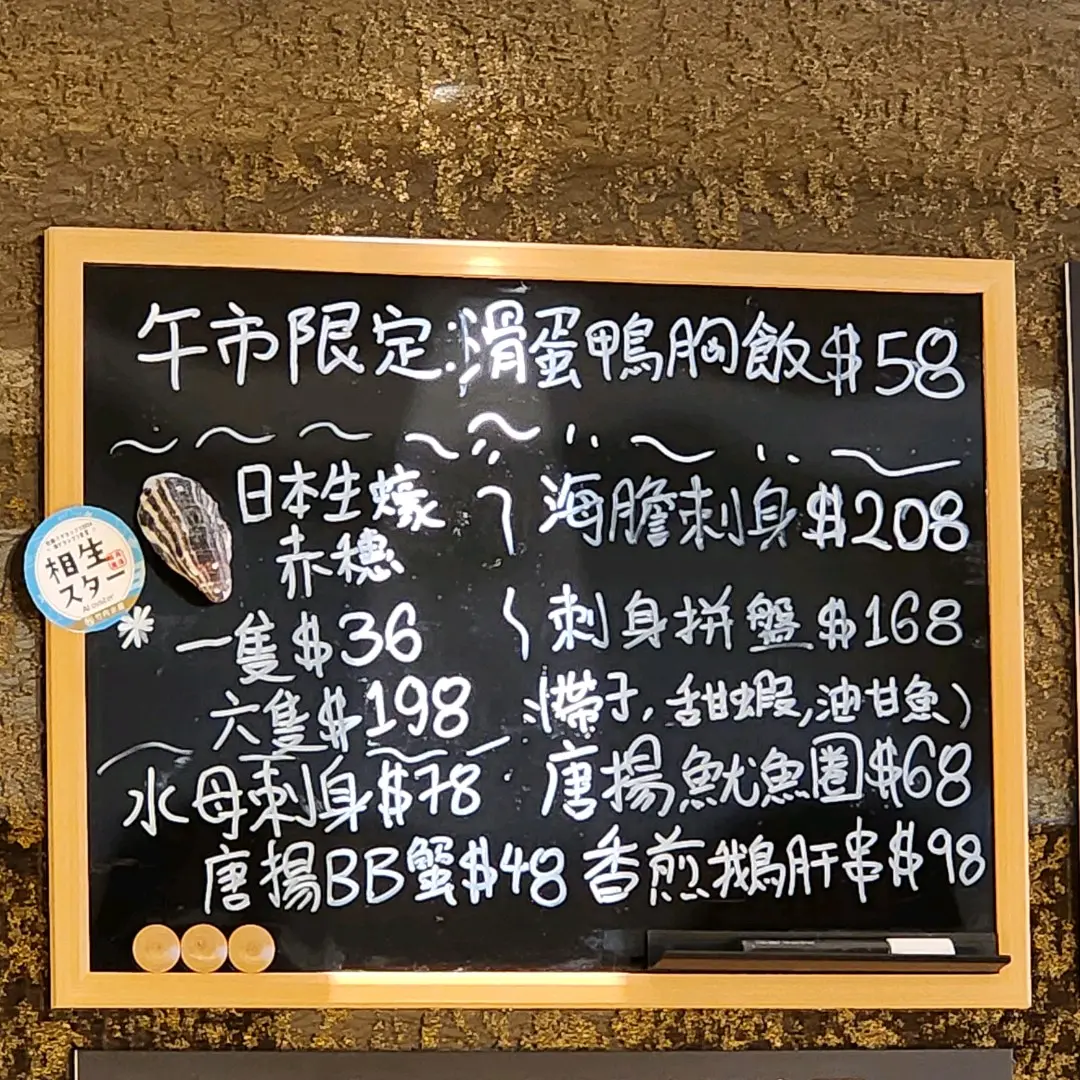 午市限定:滑蛋鴨胸飯$58
日本生蠔
赤穗
一隻$36
六隻$198
水母刺身$78
唐揚BB蟹$48
海膽刺身$208
刺身拼盤$168
(帶子,甜蝦,油甘魚)
唐揚魷魚圈$68
香煎鵝肝串$98
相生
スター